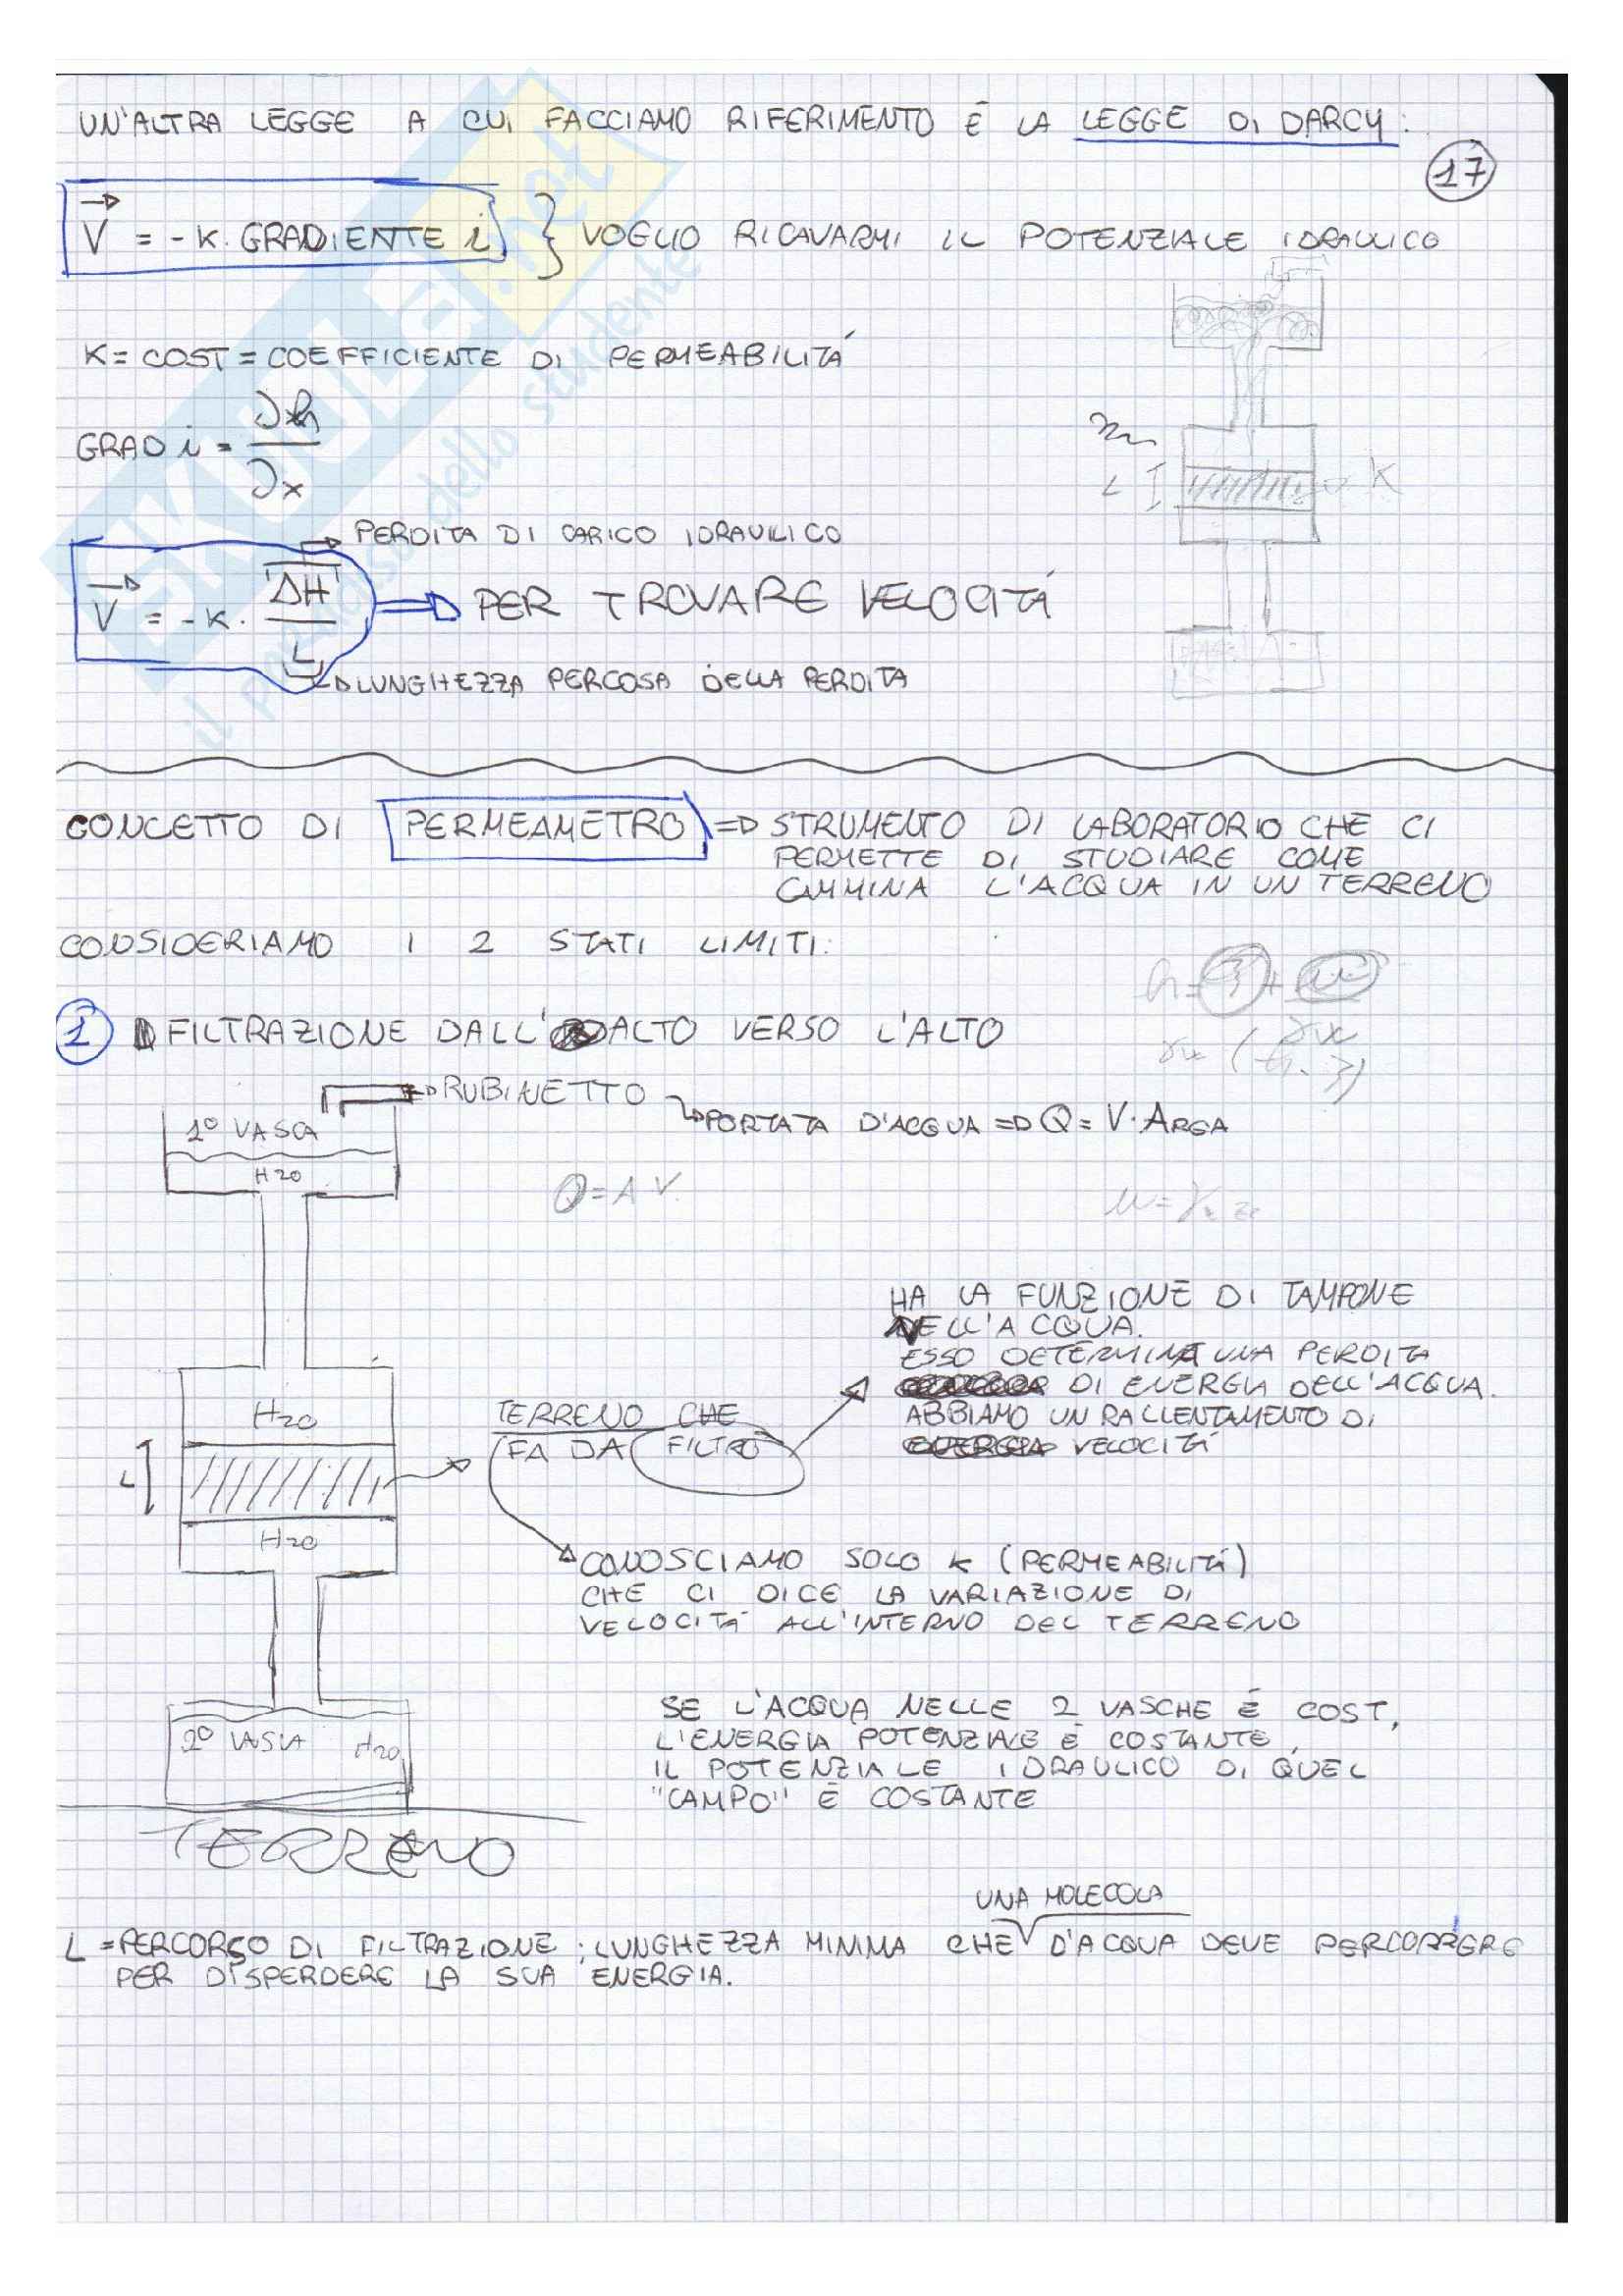 UN'ALTRA LEGGE A CUI FACCIAMO RIFERIMENTO É LA LEGGE DI DARCY:
17
V = -K. GRADIENTE i } VOGLIO RICAVARMI IL POTENZIALE IDRAULICO
K = COST = COEFFICIENTE DI PERMEABILITÁ
GRAD i = ∂h / ∂x
L K
PERDITA DI CARICO IDRAULICO
V = -K. ΔH / L => PER TROVARE VELOCITÁ
LUNGHEZZA PERCOSA DELLA PERDITA
CONCETTO DI PERMEAMETRO => STRUMENTO DI LABORATORIO CHE CI
PERMETTE DI STUDIARE COME
CAMMINA L'ACQUA IN UN TERRENO
CONSIDERIAMO I 2 STATI LIMITI:
1 FILTRAZIONE DALL'ALTO VERSO L'ALTO
RUBINETTO
PORTATA D'ACQUA => Q = V. AREA
1° VASCA
H2O
Q = A V.
HA LA FUNZIONE DI TAMPONE
NELL'ACQUA.
ESSO DETERMINA UNA PERDITA
DI ENERGIA DELL'ACQUA.
ABBIAMO UN RALLENTAMENTO DI
VELOCITÁ
H2O
TERRENO CHE
FA DA FILTRO
L
H2O
CONOSCIAMO SOLO K (PERMEABILITÁ)
CHE CI DICE LA VARIAZIONE DI
VELOCITÁ ALL'INTERNO DEL TERRENO
SE L'ACQUA NELLE 2 VASCHE É COST,
L'ENERGIA POTENZIALE É COSTANTE,
IL POTENZIALE IDRAULICO DI QUEL
"CAMPO" É COSTANTE
2° VASCA H2O
TERRENO
UNA MOLECOLA
L = PERCORSO DI FILTRAZIONE; LUNGHEZZA MINIMA CHE D'ACQUA DEVE PERCORRERE
PER DISPERDERE LA SUA ENERGIA.
SKUOLA.net
il portale dello studente